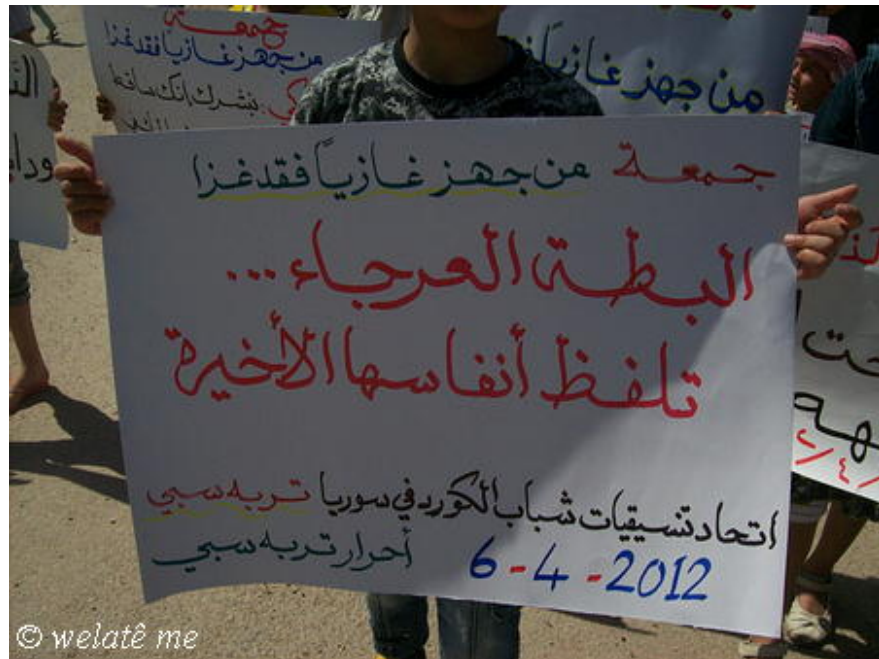 جمعة
من جهز غازياً فقد غزا
بشرك انك ساقط
من جهز غازياً
جمعة من جهز غازياً فقد غزا
البطة العرجاء...
تلفظ أنفاسها الأخيرة
اتحاد تنسيقيات شباب الكورد في سوريا تربه سبي
أحرار تربه سبي 6-4-2012
© welatê me